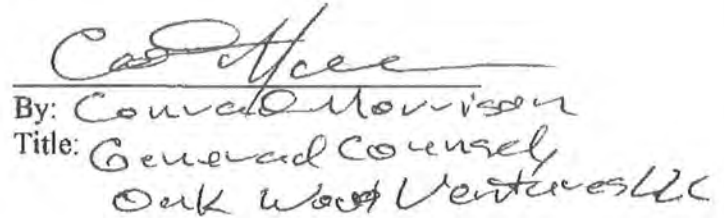 By: Conrad Morrison
Title: General Counsel,
Oak Wood Ventures LLC